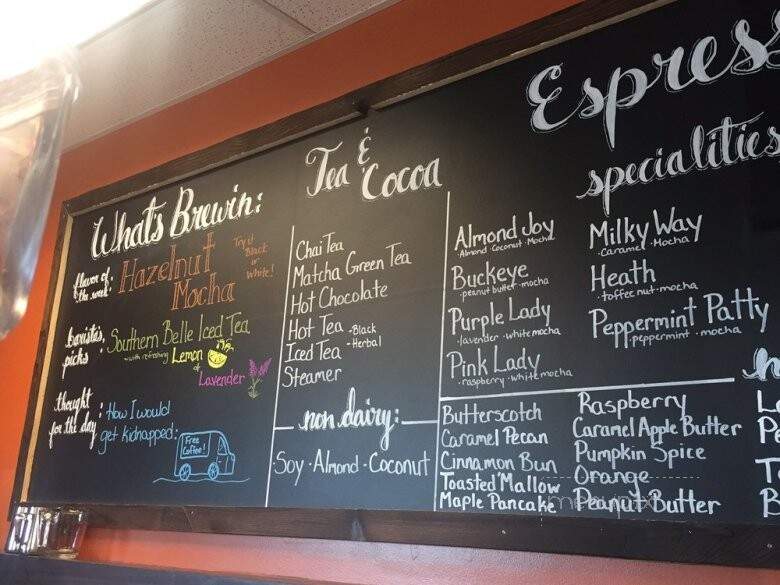 What's Brewin:
flavor of the week: Hazelnut Mocha
Try it Black or White!
barista's picks: Southern Belle Iced Tea
-with refreshing Lemon
& Lavender
thought for the day: How I would get kidnapped:
Free Coffee!
Tea & Cocoa
Chai Tea
Matcha Green Tea
Hot Chocolate
Hot Tea -Black
Iced Tea -Herbal
Steamer
non dairy:
Soy · Almond · Coconut
Espres
specialities
Almond Joy
·Almond·Coconut·Mocha
Buckeye
·peanut butter·mocha
Purple Lady
·lavender·white mocha
Pink Lady
·raspberry·white mocha
Milky Way
·Caramel·Mocha
Heath
·toffee nut·mocha
Peppermint Patty
·peppermint·mocha
Butterscotch
Caramel Pecan
Cinnamon Bun
Toasted Mallow
Maple Pancake
Raspberry
Caramel Apple Butter
Pumpkin Spice
Orange
Peanut Butter